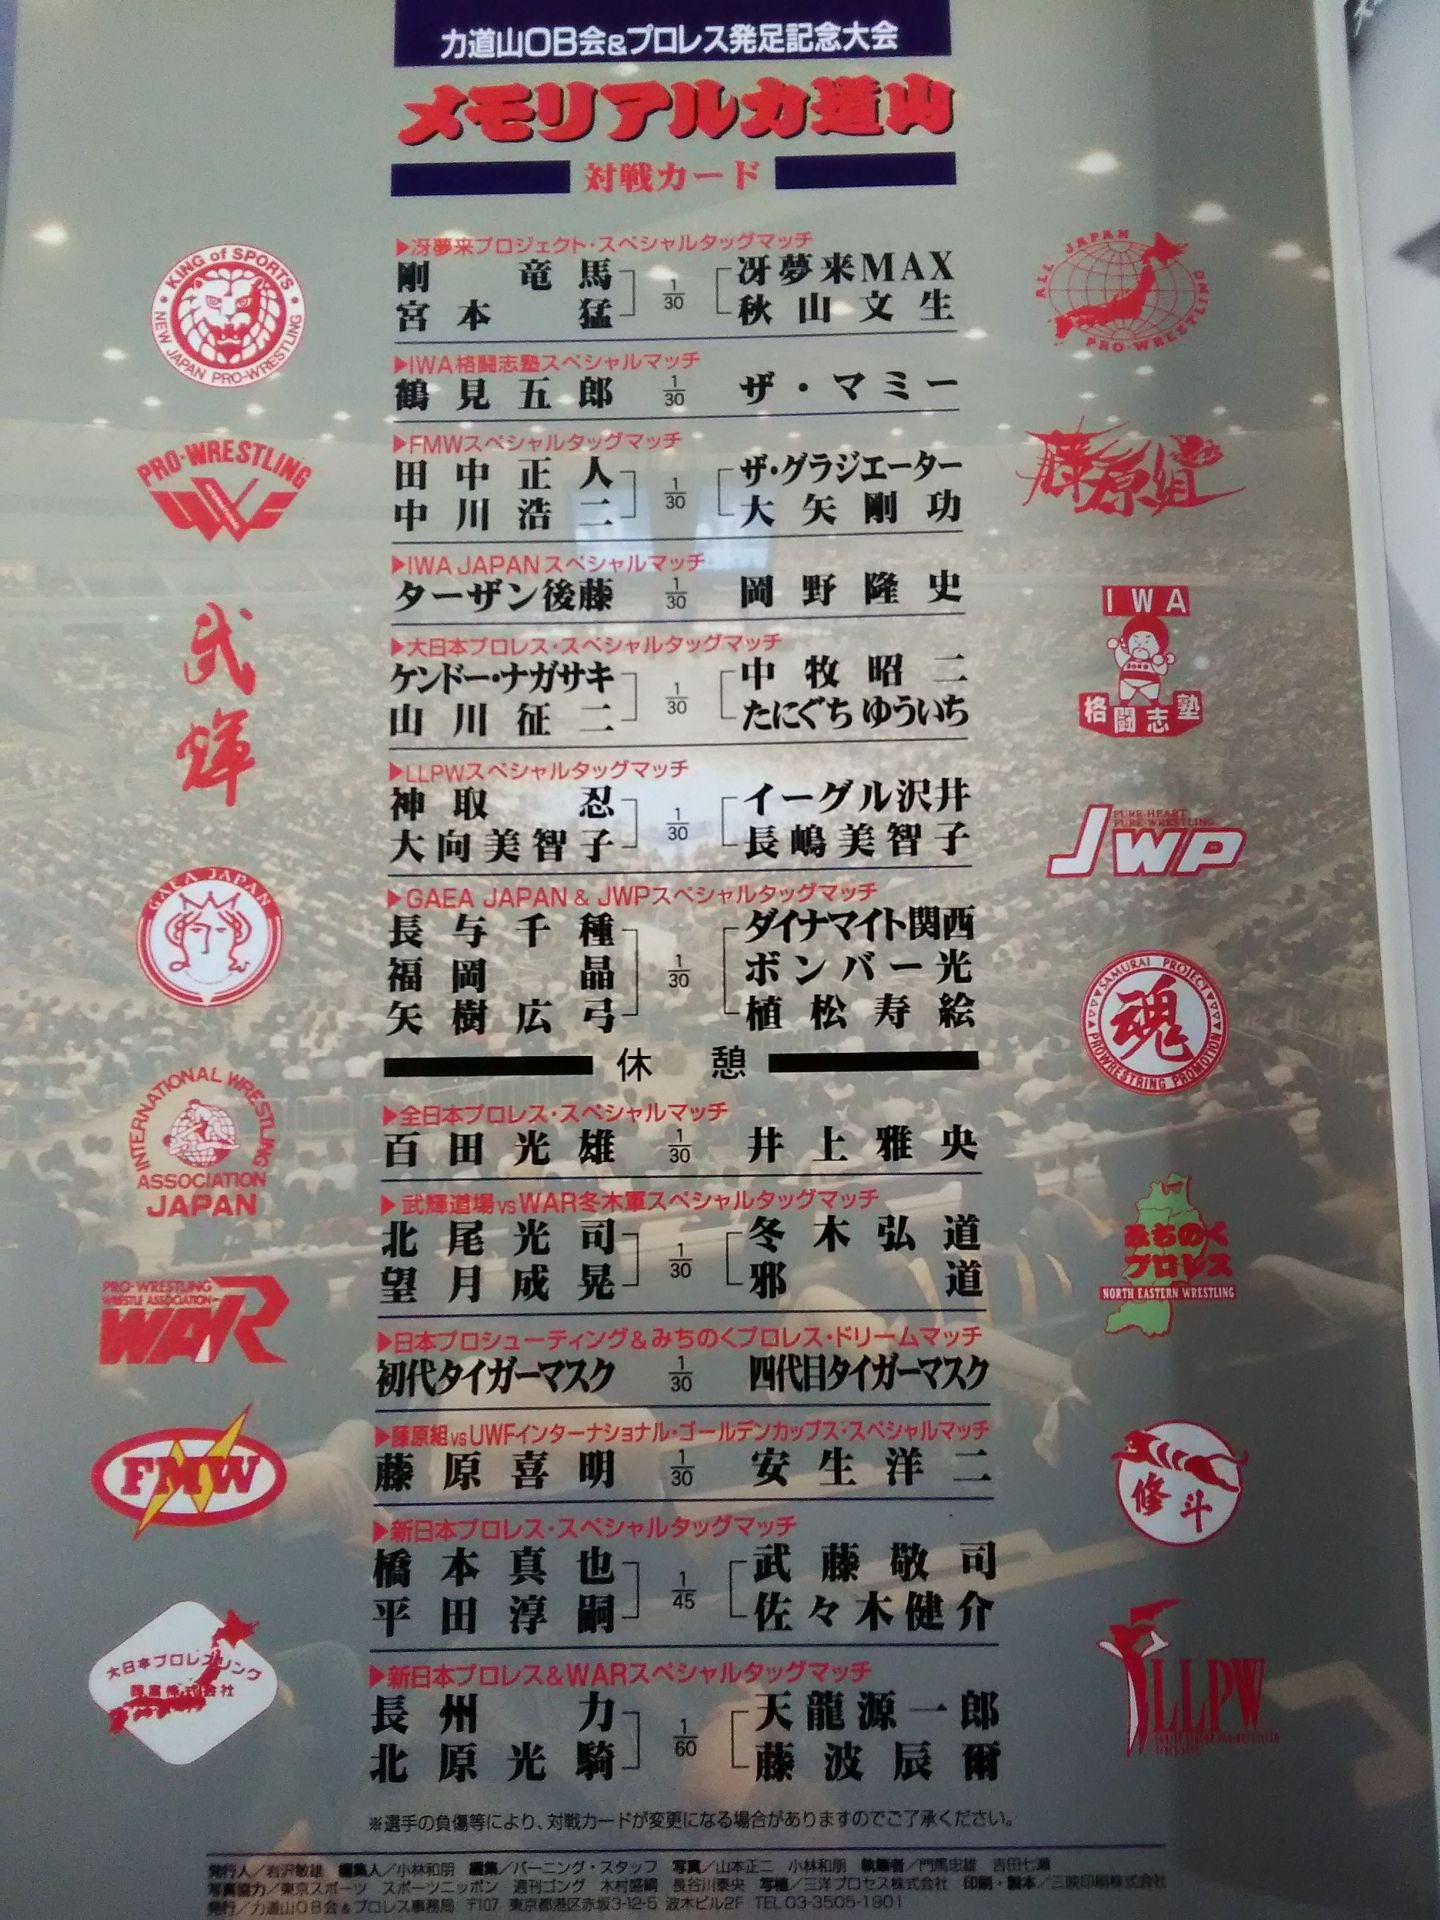 力道山OB会&プロレス発足記念大会
メモリアル力道山
対戦カード
▶冴夢来プロジェクト・スペシャルタッグマッチ
剛竜馬 1/30 冴夢来MAX
宮本猛 秋山文生
▶IWA格闘志塾スペシャルマッチ
鶴見五郎 1/30 ザ・マミー
▶FMWスペシャルタッグマッチ
田中正人 1/30 ザ・グラジエーター
中川浩二 大矢剛功
▶IWA JAPANスペシャルマッチ
ターザン後藤 1/30 岡野隆史
▶大日本プロレス・スペシャルタッグマッチ
ケンドー・ナガサキ 1/30 中牧昭二
山川征二 たにぐちゆういち
▶LLPWスペシャルタッグマッチ
神取忍 1/30 イーグル沢井
大向美智子 長嶋美智子
▶GAEA JAPAN & JWPスペシャルタッグマッチ
長与千種 ダイナマイト関西
福岡晶 1/30 ボンバー光
矢樹広弓 植松寿絵
休憩
▶全日本プロレス・スペシャルマッチ
百田光雄 1/30 井上雅央
▶武輝道場vsWAR冬木軍スペシャルタッグマッチ
北尾光司 1/30 冬木弘道
望月成晃 邪道
▶日本プロシューティング&みちのくプロレス・ドリームマッチ
初代タイガーマスク 1/30 四代目タイガーマスク
▶藤原組vsUWFインターナショナル・ゴールデンカップス・スペシャルマッチ
藤原喜明 1/30 安生洋二
▶新日本プロレス・スペシャルタッグマッチ
橋本真也 1/45 武藤敬司
平田淳嗣 佐々木健介
▶新日本プロレス&WARスペシャルタッグマッチ
長州力 1/60 天龍源一郎
北原光騎 藤波辰爾
※選手の負傷等により、対戦カードが変更になる場合がありますのでご了承ください。
発行人／岩沢敏雄 編集人／小林和朋 編集／バーニング・スタッフ 写真／山本正二 小林和朋 執筆者／門馬忠雄 吉田七瀬
写真協力／東京スポーツ スポーツニッポン 週刊ゴング 木村盛綱 長谷川泰央 写植／三洋プロセス株式会社 印刷・製本／三映印刷株式会社
発行／力道山OB会&プロレス事務局 〒107 東京都港区赤坂3-12-5 波木ビル2F TEL 03-3505-1901
KING of SPORTS
NEW JAPAN PRO-WRESTLING
PRO-WRESTLING
INTERNATIONAL
武輝
GAEA JAPAN
INTERNATIONAL WRESTLING
ASSOCIATION
JAPAN
PRO-WRESTLING
WRESTLE ASSOCIATION
WAR
FMW
大日本プロレスリング
興業株式会社
ALL JAPAN
PRO-WRESTLING
藤原組
IWA
格闘志塾
PURE-HEART
PURE-WRESTLING
JWP
SAMURAI PROJECT
魂
PROWRESTRING PROMOTION
みちのく
プロレス
NORTH EASTERN WRESTLING
修斗
LLPW